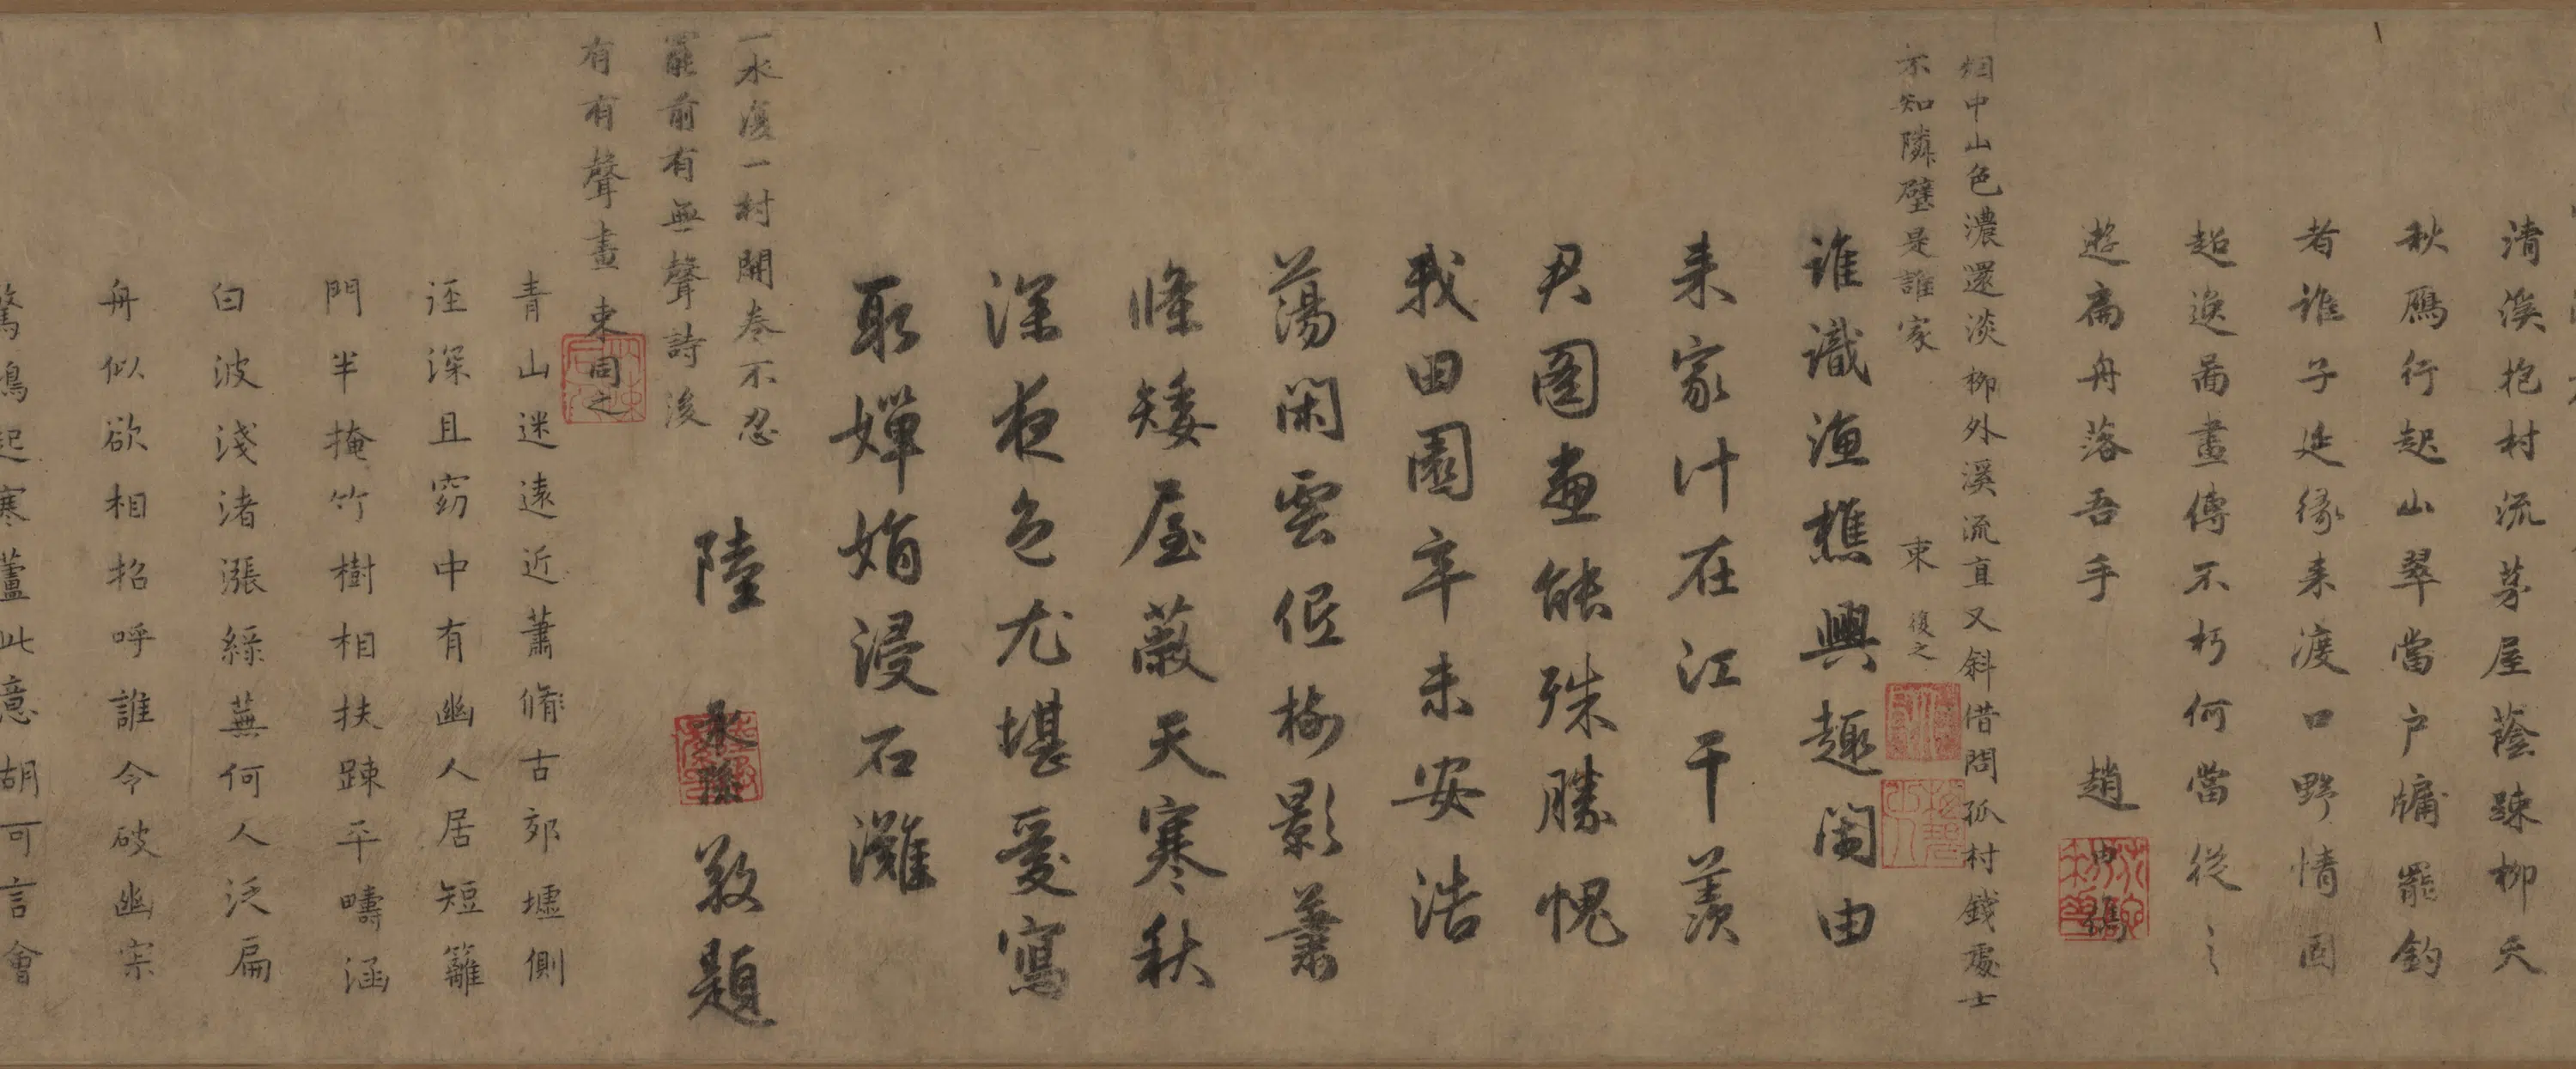 清溪抱村流茅屋蔭踈柳天
秋鴈行起山翠當户牖罷釣
者誰子延緣来渡口野情固
超逸啚畫傳不朽何當從之
遊扁舟落吾手
趙
烟中山色濃還淡柳外溪流直又斜借問孤村錢處士
不知隣壁是誰家
束復之
誰識漁樵興趣閑由
来家计在江干羡
君圖畫能殊勝愧
我田園卒未安浩
蕩閑雲低樹影蕭
條矮屋蔽天寒秋
深夜色尤堪愛寫
取嬋娟浸石灘
陸
敬題
一水復一村開卷不忍
罷前有無聲詩後
有有聲畫束同之
青山迷遠近蕭脩古郊墟側
逕深且窈中有幽人居短籬
門半掩竹樹相扶踈平疇涵
白波淺渚漲綠蕪何人泛扁
舟似欲相招呼誰令破幽寂
鴻起寒蘆此意胡可言會